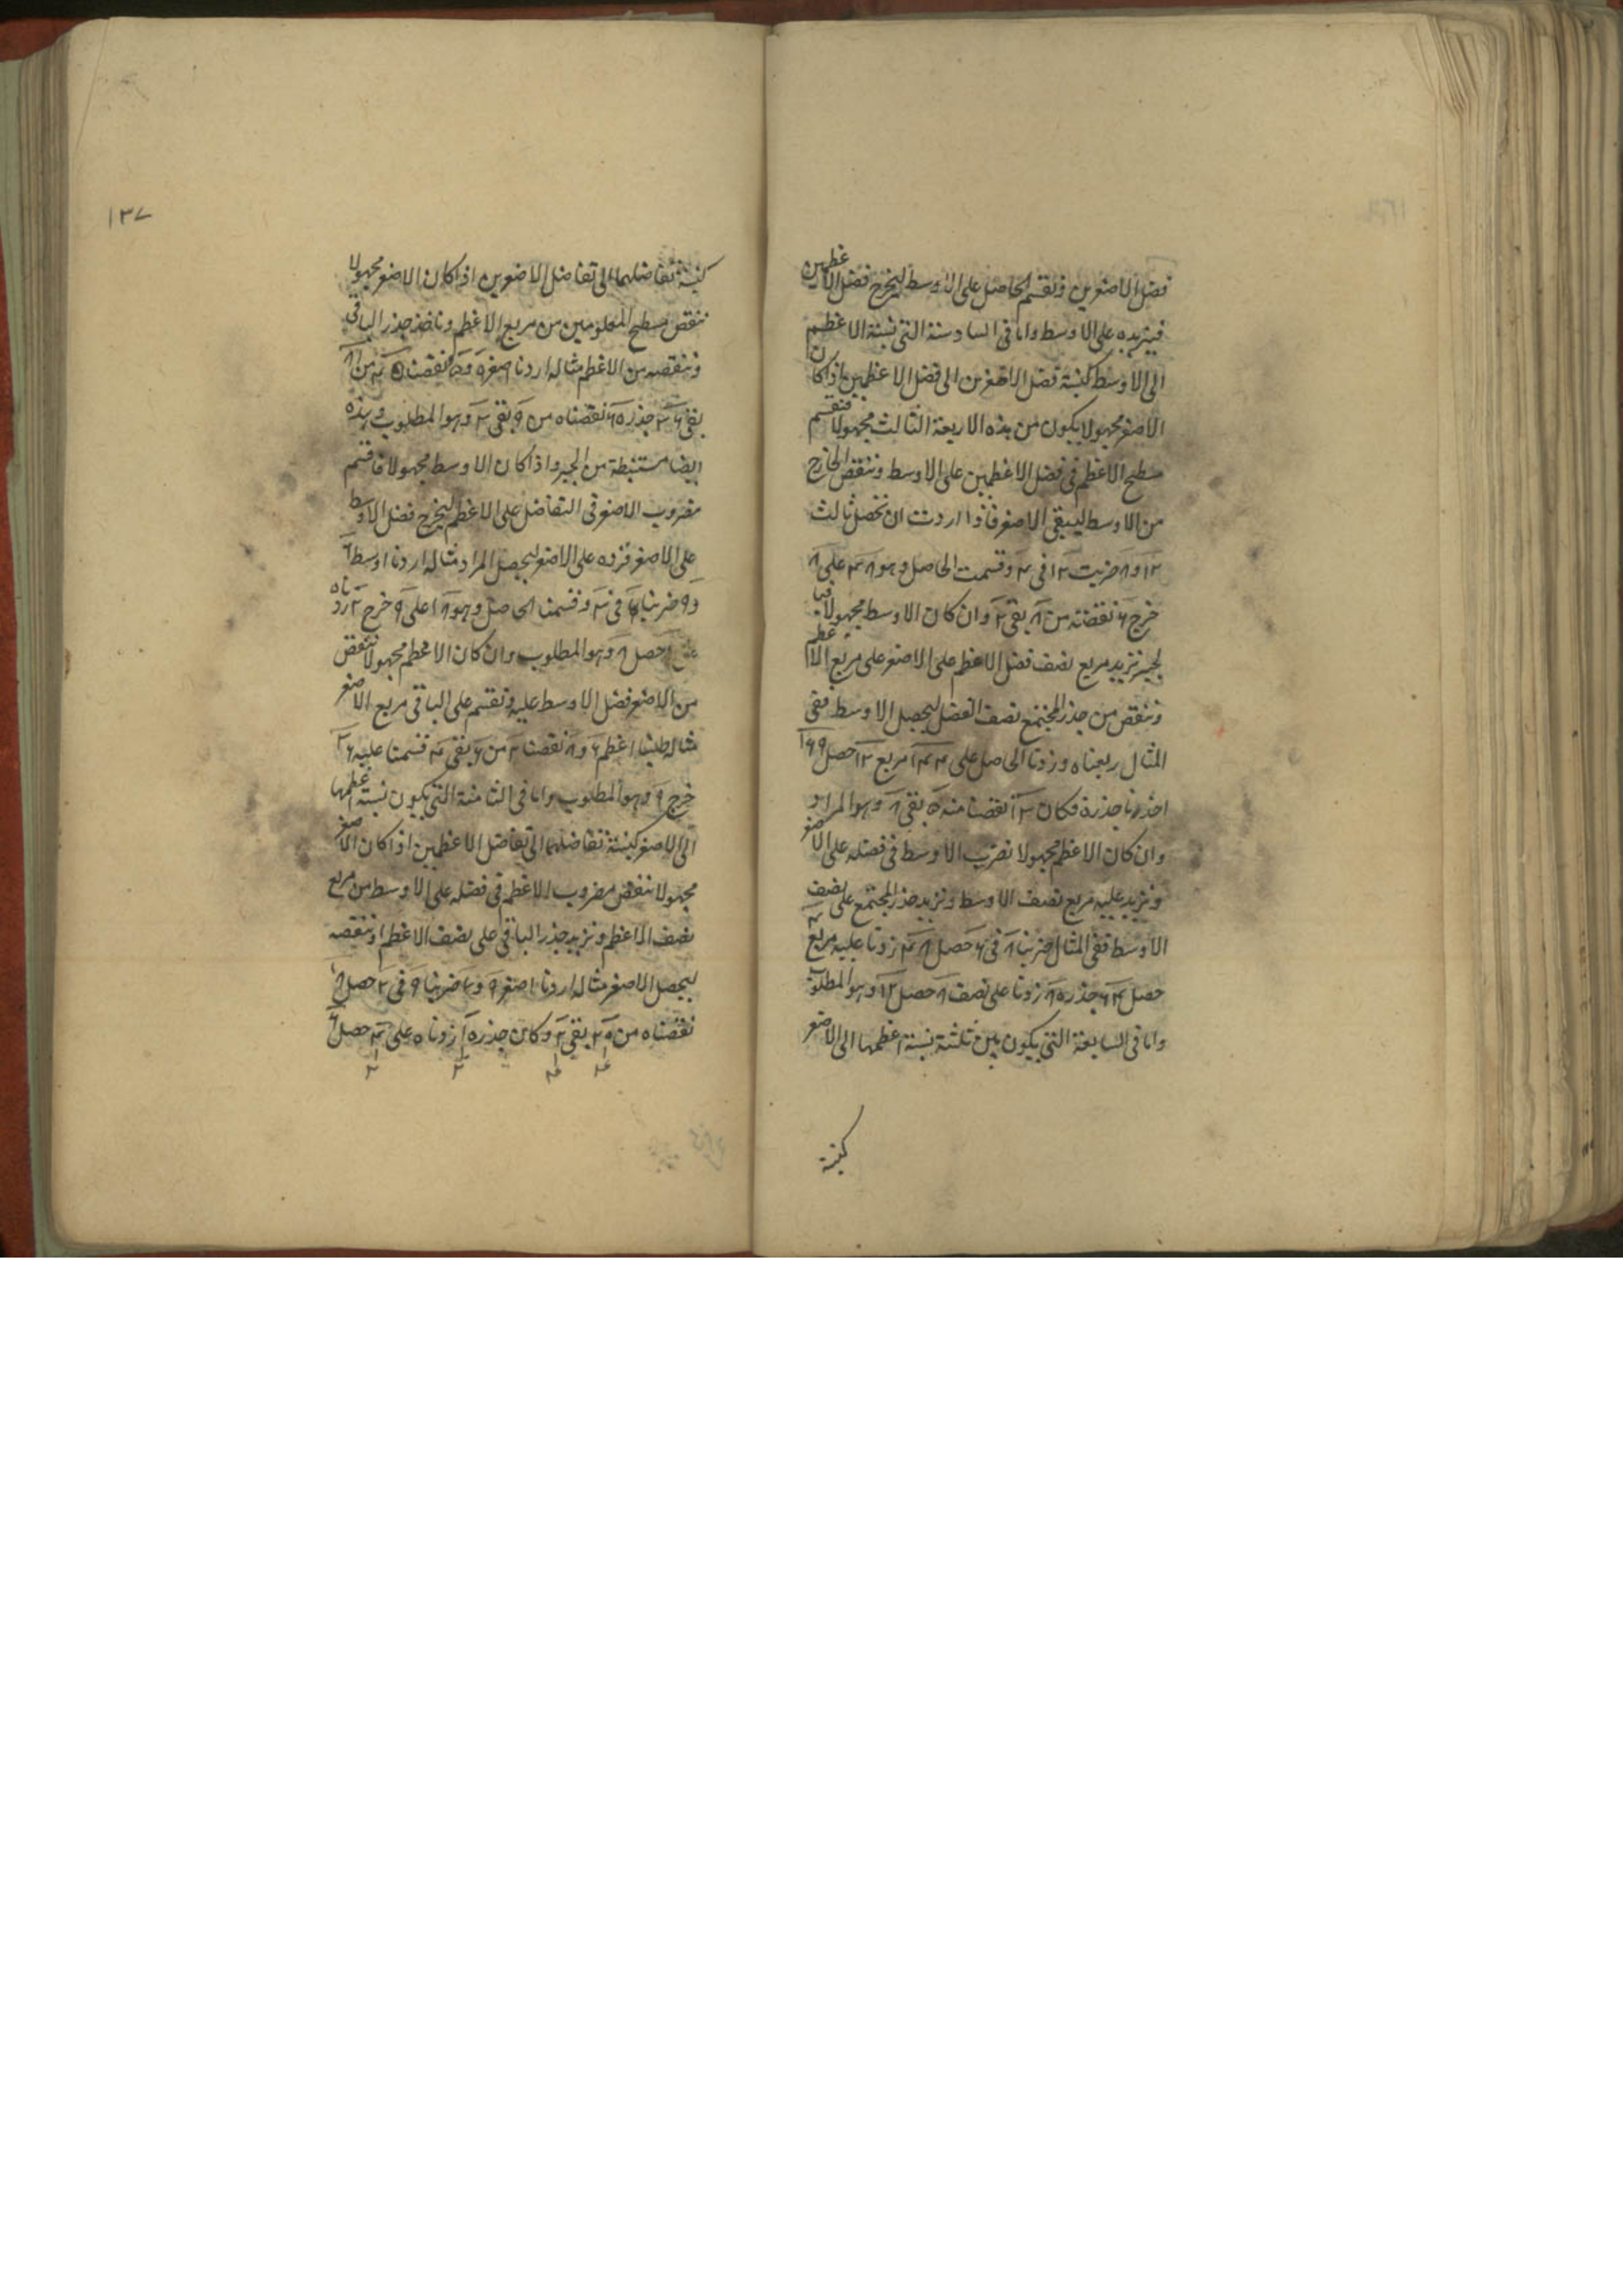 فضل الاصغرين ونقسم الحاصل على الاوسط ليخرج فضل الاعظمين
فيزيده على الاوسط واما فى السادسة التى نسبة الاعظم
الى الاوسط كنسبة فضل الاصغرين الى فضل الاعظمين فاذا كان
الاصغر مجهولا يكون من هذه الاربعة الثالث مجهولا فنقسم
مسطح الاعظم فى فضل الاعظمين على الاوسط وننقص الخارج
من الاوسط ليبقى الاصغر فاذا اردت ان تحصل ثالث
١٢ و ٨ ضربت ١٢ فى ۴ وقسمت الحاصل وهو ۴٨ على ٨
خرج ۶ نقصته من ٨ بقى ٢ وان كان الاوسط مجهولا فبا
لجبر نزيد مربع نصف فضل الاعظم على الاصغر على مربع الاعظم
وننقص من جذر المجتمع نصف الفضل ليحصل الاوسط ففى
المثال ربعناه وزدنا الحاصل على ١۴۴ مربع ١٢ حصل ١۶٩
اخذنا جذره فكان ١٣ نقصنا منه ٥ بقى ٨ وهو المراد
وان كان الاعظم مجهولا نضرب الاوسط فى فضله على الاصغر
ونزيد عليه مربع نصف الاوسط ونزيد جذر المجتمع على نصف
الاوسط ففى المثال ضربنا ٨ فى ۶ حصل ۴٨ زدنا عليه مربع ۴
حصل ۶۴ جذره ٨ زدنا على نصف ٨ حصل ١٢ وهو المطلوب
واما فى السابعة التى يكون بين ثلثة نسبة اعظمها الى الاصغر
كنسبة
١٣٧
كنسبة تفاضلهما الى تفاضل الاصغرين اذا كان الاصغر مجهولا
ننقص مسطح المعلومين من مربع الاعظم وناخذ جذر الباقى
وننقصه من الاعظم مثاله اردنا اصغر ٩ و ٥ نقصنا ۴٥ من ٨١
بقى ٣۶ جذره ۶ نقصناه من ٩ بقى ٣ وهو المطلوب وهذه
ايضا مستنبطة من الجبر واذا كان الاوسط مجهولا فاقسم
مضروب الاصغر فى التفاضل على الاعظم ليخرج فضل الاوسط
على الاصغر فزده على الاصغر ليحصل المراد مثاله اردنا اوسط ۶
و ٩ ضربنا ۶ فى ٣ وقسمنا الحاصل وهو ١٨ على ٩ خرج ٢ زدناه
على ۶ حصل ٨ وهو المطلوب وان كان الاعظم مجهولا ننقص
من الاصغر فضل الاوسط عليه ونقسم على الباقى مربع الاصغر
مثاله طلبنا اعظم ۶ و ٨ نقصنا ٢ من ۶ بقى ۴ قسمنا عليه ٣۶
خرج ٩ وهو المطلوب واما فى الثامنة التى يكون نسبة اعظمها
الى الاصغر كنسبة تفاضلهما الى تفاضل الاعظمين اذا كان الاصغر
مجهولا ننقص مضروب الاعظم فى فضله على الاوسط من مربع
نصف الاعظم ونزيد جذر الباقى على نصف الاعظم او ننقصه
ليحصل الاصغر مثاله اردنا اصغر ٩ و ٧ ضربنا ٩ فى ٢ حصل ١٨
نقصناه من ٢٠ بقى ٢ وكان جذره ١ زدناه على ۴ حصل ۶